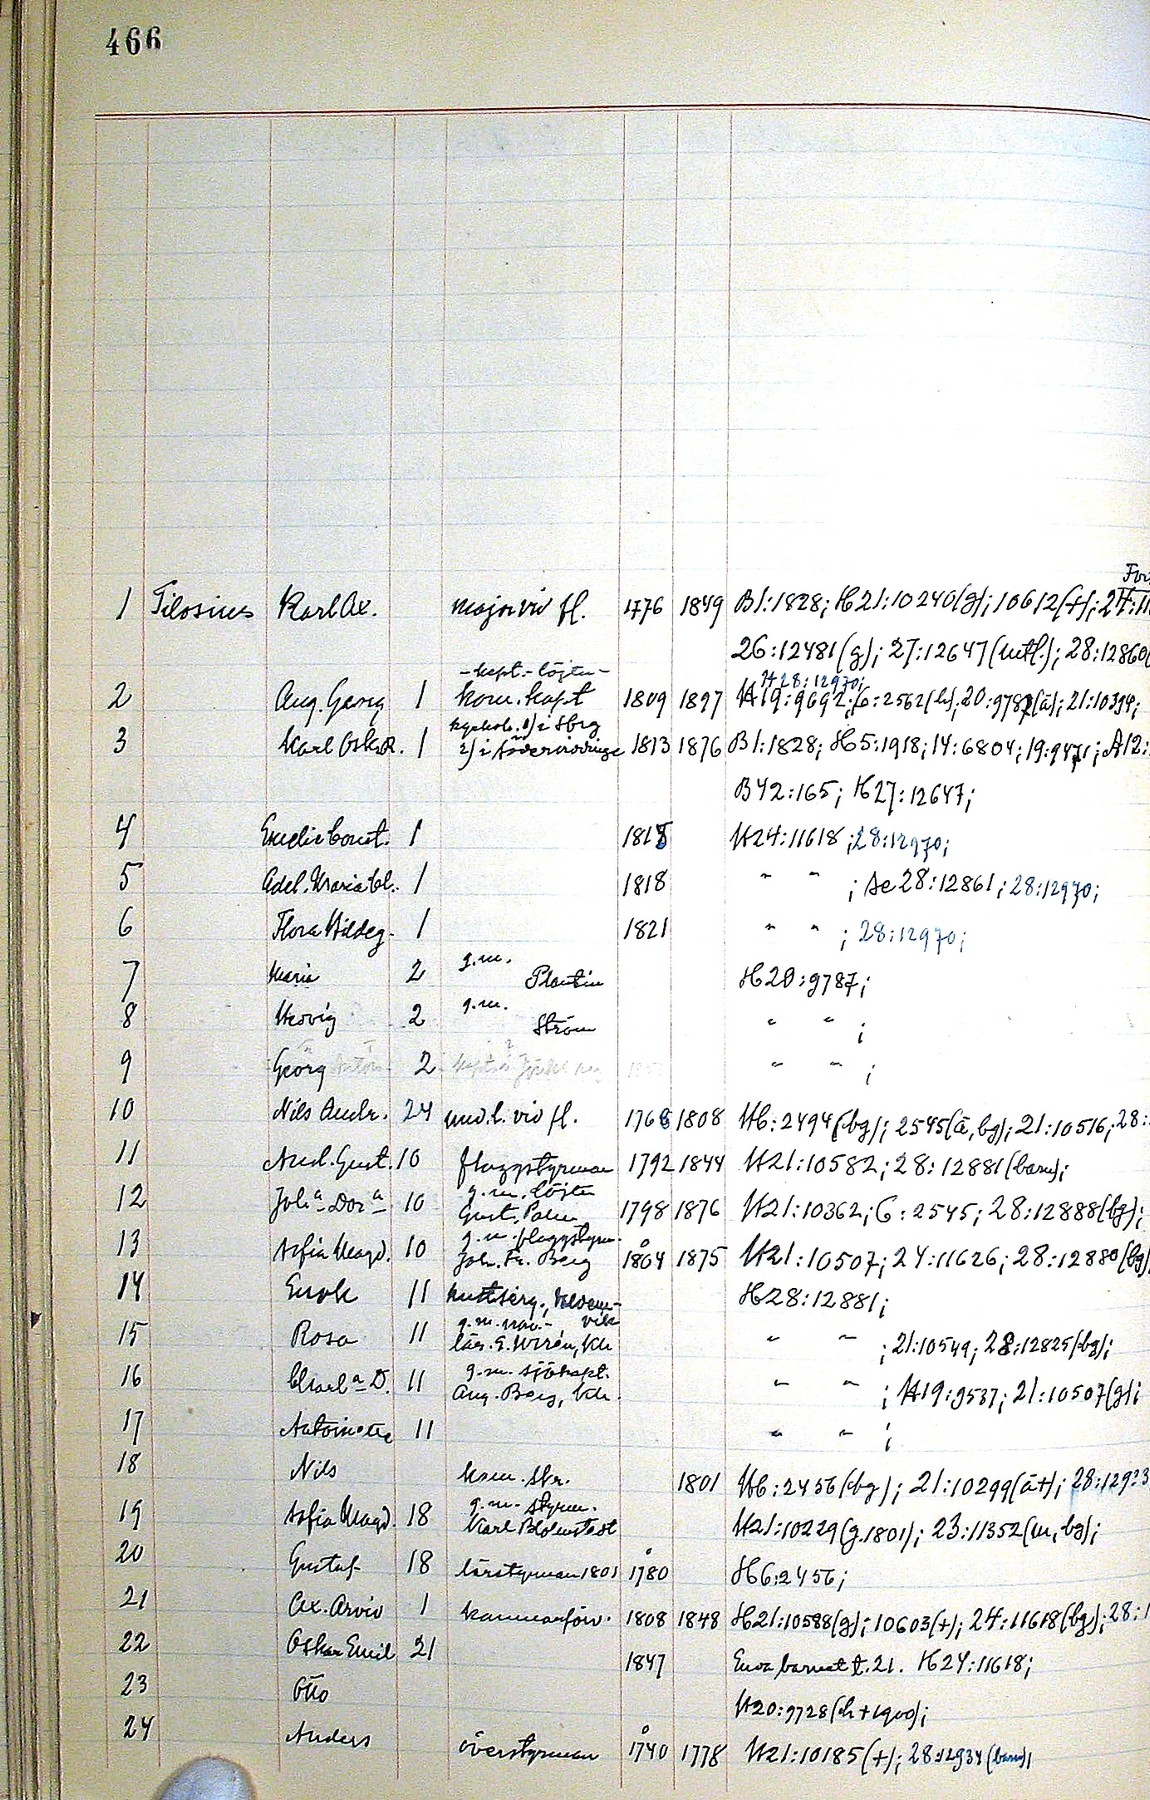 466
För
1 Filosius Karl Ax. major vid fl. 1776 1849 B1:1828; H21:10240(g); 10612(+); 24:11
26:12481(g); 27:12647(utfl.); 28:12860(
-kapt.-löjtn- H28:12970;
2 Aug. Georg 1 kom. kapt 1809 1897 H19:9692; 6:2562(h); 20:9787(ä); 21:10394;
3 Karl Oskar. 1 kyrkoh. 1) i Sbrg 2) i Södervidinge 1813 1876 B1:1828; H5:1918; 14:6804; 19:9471; A12:
B42:165; H27:12647;
4 Emelie Const. 1 1815 H24:11618; 28:12970;
5 Adel. Maria Cl. 1 1818 " " ; Ae 28:12861; 28:12970;
6 Flora Hildeg. 1 1821 " " ; 28:12970;
7 Maria 2 g.m. Plantin H20:9787;
8 Hedvig 2 g.m. Ström " " ;
9 Georg 2 " " ;
10 Nils Andr. 24 und.l. vid fl. 1766 1808 H6:2494(bg); 2545(ä, bg); 21:10516; 28:
11 And. Gust. 10 flaggstyrman 1792 1844 H21:10582; 28:12881(barn);
12 Joha Dora 10 g.m. löjtn Gust. Palm 1798 1876 H21:10362; 6:2545; 28:12888(bg);
13 Sofia Magd. 10 g.m. flaggstyrm. Joh. Fr. Berg 1804 1875 H21:10507; 24:11626; 28:12880(bg)
14 Enok 11 H28:12881;
15 Rosa 11 g.m. nav.- lär. E. Wirén, Kk " " ; 21:10549; 28:12825(bg);
16 Charla D. 11 g.m. sjökapt. Aug. Berg, Kk. " " ; H19:9537; 21:10507(g);
17 Antoinette 11 " " ;
18 Nils kom. skr. 1801 H6:2456(bg); 21:10299(ä+); 28:129
19 Sofia Magd. 18 g.m. styrm. Karl Blomstedt H21:10229(g.1801); 23:11352(m, bg);
20 Gustaf 18 lärstyrman 1801 1780 H6:2456;
21 Ax. Arvid 1 kammarförv. 1808 1848 H21:10588(g); 10603(+); 24:11618(bg); 28:1
22 Oskar Emil 21 1847 Enda barnet t. 21. H24:11618;
23 Otto H20:9728(h+1900);
24 Anders överstyrman 1740 1778 H21:10185(+); 28:12934(barn);